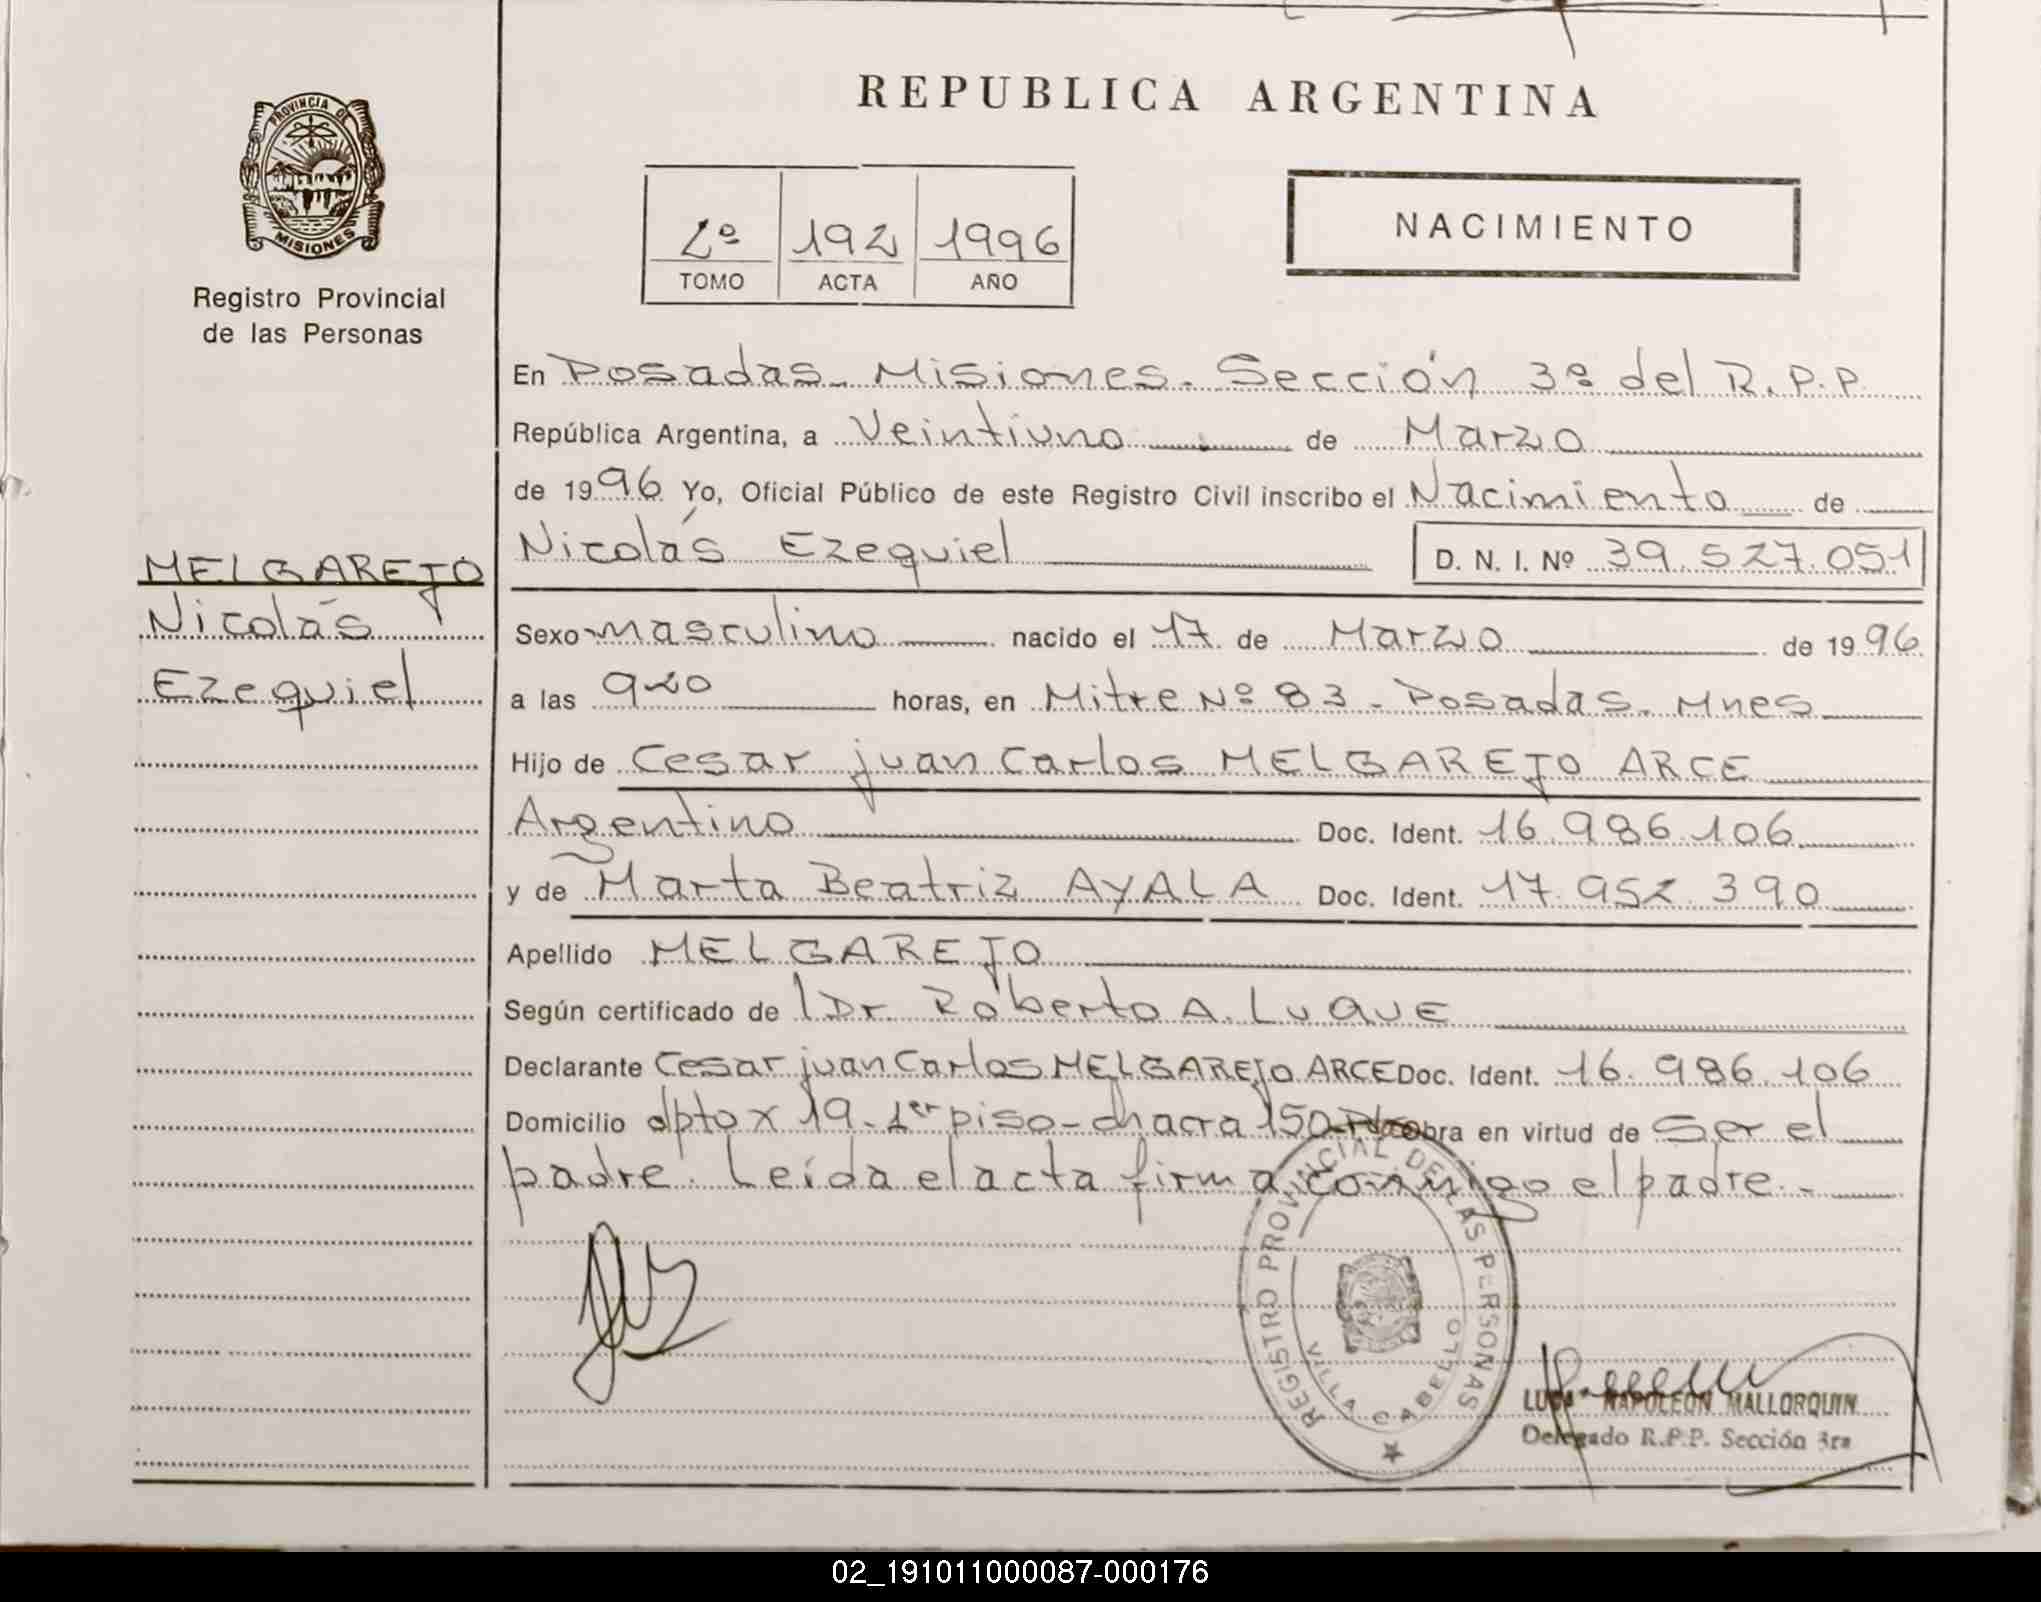 REPUBLICA ARGENTINA
PROVINCIA DE
MISIONES
Registro Provincial
de las Personas
2º 192 1996
TOMO ACTA AÑO
NACIMIENTO
MELGAREJO
Nicolás
Ezequiel
En Posadas - Misiones - Sección 3º del R.P.P.
República Argentina, a Veintiuno de Marzo
de 1996 Yo, Oficial Público de este Registro Civil inscribo el Nacimiento de
Nicolás Ezequiel D. N. I. Nº 39.527.051
Sexo masculino nacido el 17 de Marzo de 1996
a las 9-20 horas, en Mitre Nº 83 - Posadas - Mnes
Hijo de Cesar juan Carlos MELGAREJO ARCE
Argentino Doc. Ident. 16.986.106
y de Marta Beatriz AYALA Doc. Ident. 17.952.390
Apellido MELGAREJO
Según certificado de Dr. Roberto A. LUQUE
Declarante Cesar juan Carlos MELGAREJO ARCE Doc. Ident. 16.986.106
Domicilio dpto x 19 - 1er piso - chacra 150 obra en virtud de Ser el
padre. Leída el acta firma conmigo el padre. -
REGISTRO PROVINCIAL DE LAS PERSONAS
VILLA CABELLO
NAPOLEON MALLORQUIN
Delegado R.P.P. Sección 3ra
02_191011000087-000176